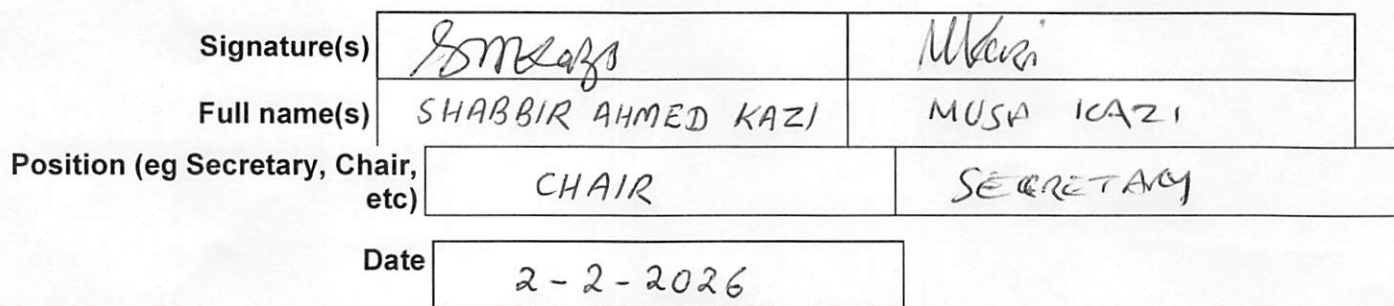 Signature(s) SMKazi MKazi
Full name(s) SHABBIR AHMED KAZI MUSA KAZI
Position (eg Secretary, Chair,
etc) CHAIR SECRETARY
Date 2-2-2026